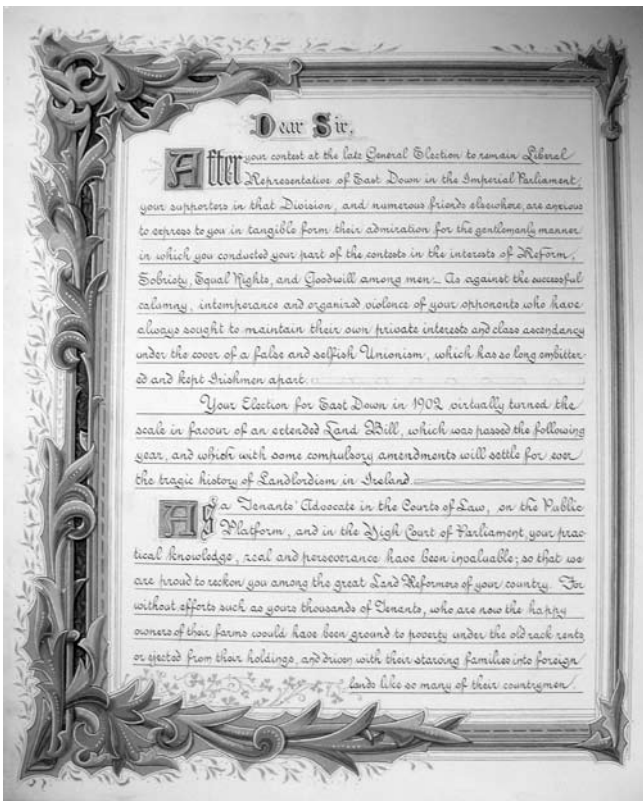 Dear Sir,
After your contest at the late General Election to remain Liberal
Representative of East Down in the Imperial Parliament;
your supporters in that Division, and numerous friends elsewhere, are anxious
to express to you in tangible form their admiration for the gentlemanly manner
in which you conducted your part of the contests in the interests of Reform,
Sobriety, Equal Rights, and Goodwill among men_ As against the successful
calumny, intemperance and organized violence of your opponents who have
always sought to maintain their own private interests and class ascendancy
under the cover of a false and selfish Unionism, which has so long embitter-
ed and kept Irishmen apart
Your Election for East Down in 1902 virtually turned the
scale in favour of an extended Land Bill, which was passed the following
year, and which with some compulsory amendments will settle for ever
the tragic history of Landlordism in Ireland
As a Tenants' Advocate in the Courts of Law, on the Public
Platform, and in the High Court of Parliament, your prac-
tical knowledge, zeal and perseverance have been invaluable; so that we
are proud to reckon you among the great Land Reformers of your country. For
without efforts such as yours thousands of Tenants, who are now the happy
owners of their farms would have been ground to poverty under the old rack rents
or ejected from their holdings, and driven with their starving families into foreign
lands like so many of their countrymen.